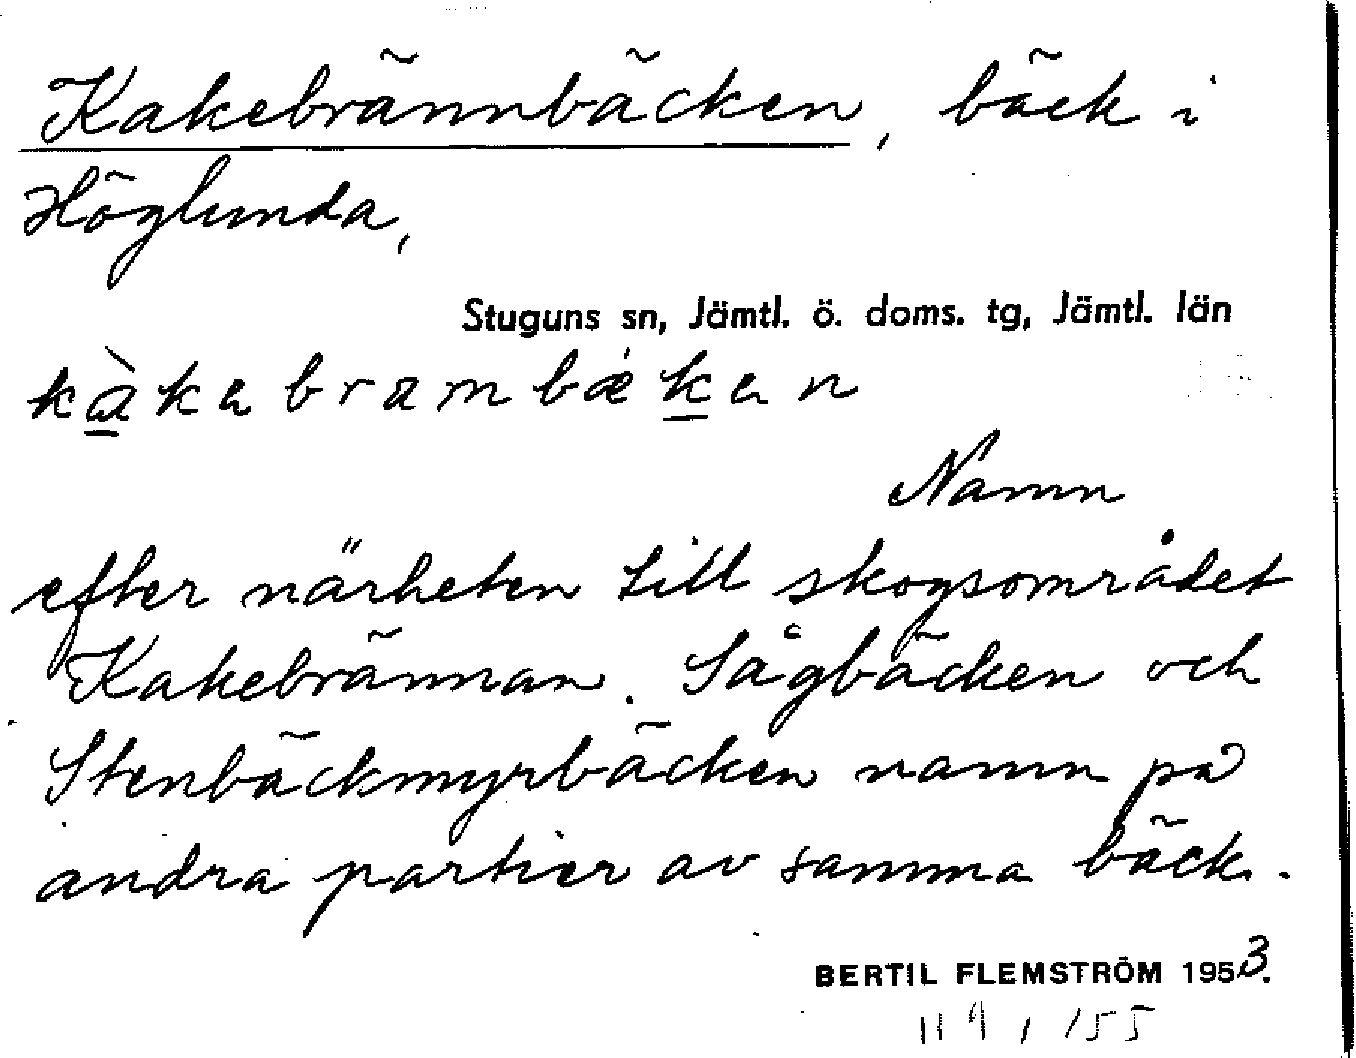 Kakebrännbäcken, bäck i
Höglunda,
Stuguns sn, Jämtl. ö. doms. tg, Jämtl. län
kàkabrambækan
Namn
efter närheten till skogsområdet
Kakebrännan. Sågbäcken och
Stenbäckmyrbäcken namn på
andra partier av samma bäck.
BERTIL FLEMSTRÖM 1953.
119, 155